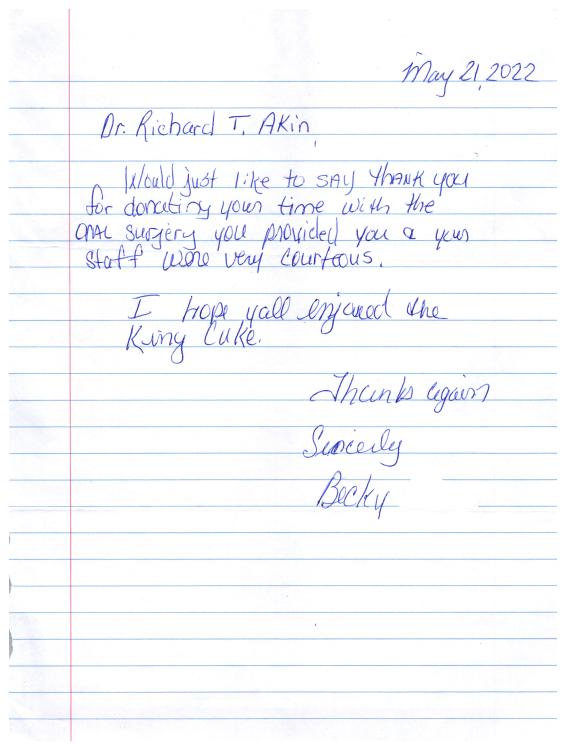 May 21, 2022
Dr. Richard T. Akin,
Would just like to SAY THANK you
for donating your time with the
ORAL surgery you provided you & your
Staff were very courteous.
I hope yall enjoyed the
King Cake.
Thanks again
Sincerly
Becky